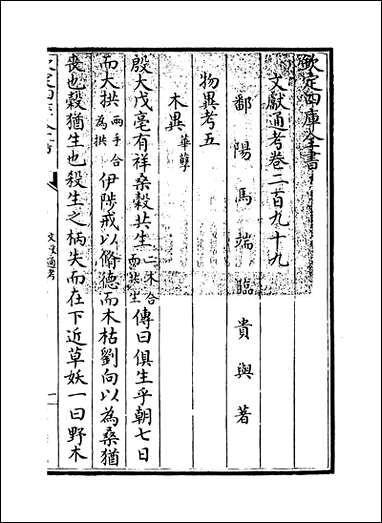 欽定四庫全書
文獻通考卷二百九十九
鄱陽馬端臨貴與著
物異考五
木異 華孽
殷大戊亳有祥桑穀共生二木合而共生傳曰俱生乎朝七日
而大拱兩手合為拱伊陟戒以脩德而木枯劉向以為桑猶
喪也穀猶生也殺生之柄失而在下近草妖一曰野木
文獻通考